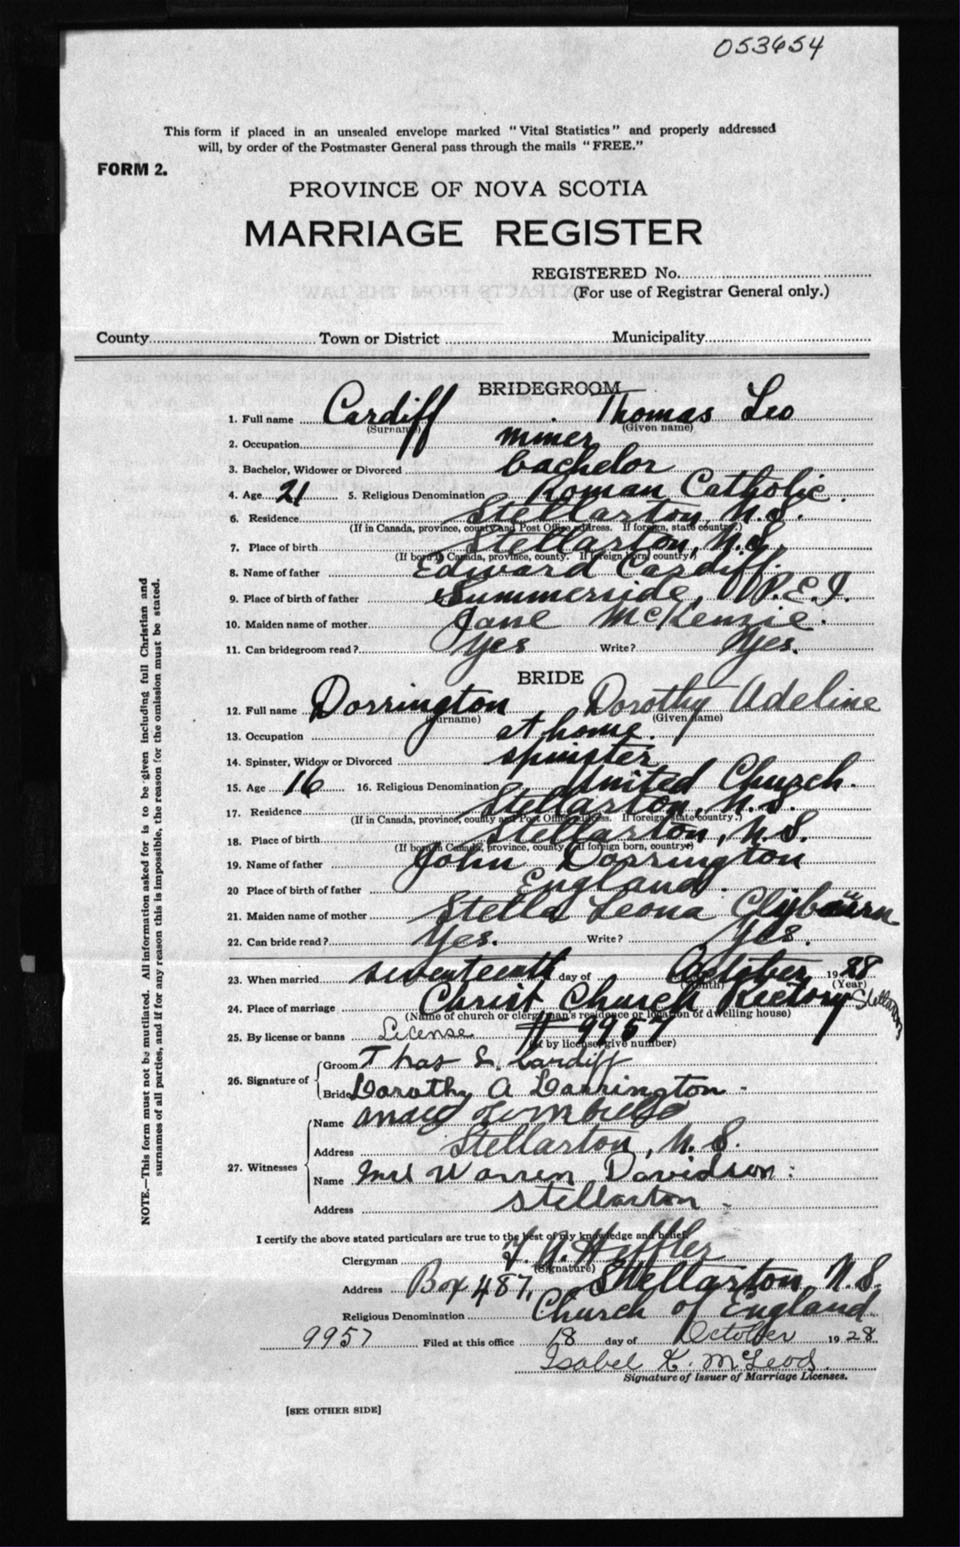 053654
This form if placed in an unsealed envelope marked "Vital Statistics" and properly addressed
will, by order of the Postmaster General pass through the mails "FREE."
FORM 2.
PROVINCE OF NOVA SCOTIA
MARRIAGE REGISTER
REGISTERED No.
(For use of Registrar General only.)
County Town or District Municipality
BRIDEGROOM
1. Full name Cardiff Thomas Leo
(Surname) (Given name)
2. Occupation miner
3. Bachelor, Widower or Divorced bachelor
4. Age 21 5. Religious Denomination Roman Catholic.
6. Residence Stellarton, N.S.
(If in Canada, province, county and Post Office address. If foreign, state country.)
7. Place of birth Stellarton, N.S.
(If born in Canada, province, county. If foreign born, country)
8. Name of father Edward Cardiff.
9. Place of birth of father Summerside, P.E.I.
10. Maiden name of mother Jane McKenzie.
11. Can bridegroom read? Yes Write? Yes.
BRIDE
12. Full name Dorrington Dorothy Adeline
(Surname) (Given name)
13. Occupation at home.
14. Spinster, Widow or Divorced spinster
15. Age 16 16. Religious Denomination United Church.
17. Residence Stellarton, N.S.
(If in Canada, province, county and Post Office address. If foreign, state country.)
18. Place of birth Stellarton, N.S.
(If born in Canada, province, county. If foreign born, country)
19. Name of father John Dorrington
20 Place of birth of father England.
21. Maiden name of mother Stella Leona
22. Can bride read? Yes. Write? Yes.
23. When married seventeenth day of October 1928
(Month) (Year)
24. Place of marriage Christ Church Rectory Stellarton
(Name of church or clergyman's residence or location of dwelling house)
25. By license or banns License # 9957
(If by license, give number)
26. Signature of Groom Thos L. Cardiff
Bride Dorothy A Dorrington
27. Witnesses
Name
Address Stellarton, N.S.
Name Mrs Warren Davidson
Address Stellarton
I certify the above stated particulars are true to the best of my knowledge and belief.
Clergyman Heffler
(Signature)
Address Box 487, Stellarton, N.S.
Religious Denomination Church of England
9957 Filed at this office 18 day of October 1928
Isabel K. McLeod.
Signature of Issuer of Marriage Licenses.
[SEE OTHER SIDE]
NOTE.—This form must not be mutilated. All information asked for is to be given including full Christian and
surnames of all parties, and if for any reason this is impossible, the reason for the omission must be stated.